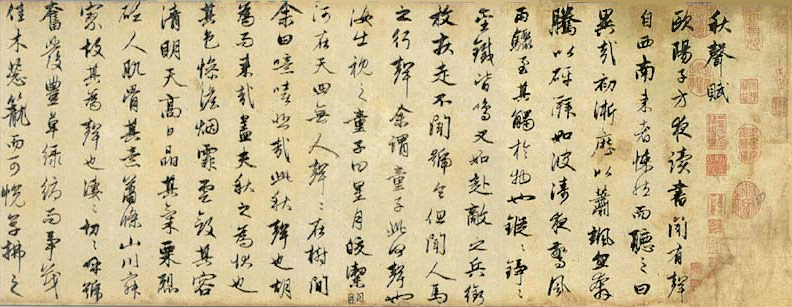 秋聲賦
歐陽子方夜讀書聞有聲
自西南來者悚然而聽之曰
異哉初淅瀝以蕭颯忽奔
騰以砰湃如波濤夜驚風
雨驟至其觸於物也鏦〻錚〻
金鐵皆鳴又如赴敵之兵銜
枚疾走不聞號令但聞人馬
之行聲余謂童子此何聲也
汝出視之童子曰星月皎潔明
河在天四無人聲〻在樹間
余曰噫嘻悲哉此秋聲也胡
為而來哉蓋夫秋之為狀也
其色慘淡烟霏雲斂其容
清明天高日晶其氣栗烈
砭人肌骨其意蕭條山川寂
寥故其為聲也淒〻切〻呼號
奮發豐草綠縟而爭茂
佳木葱蘢而可悅草拂之